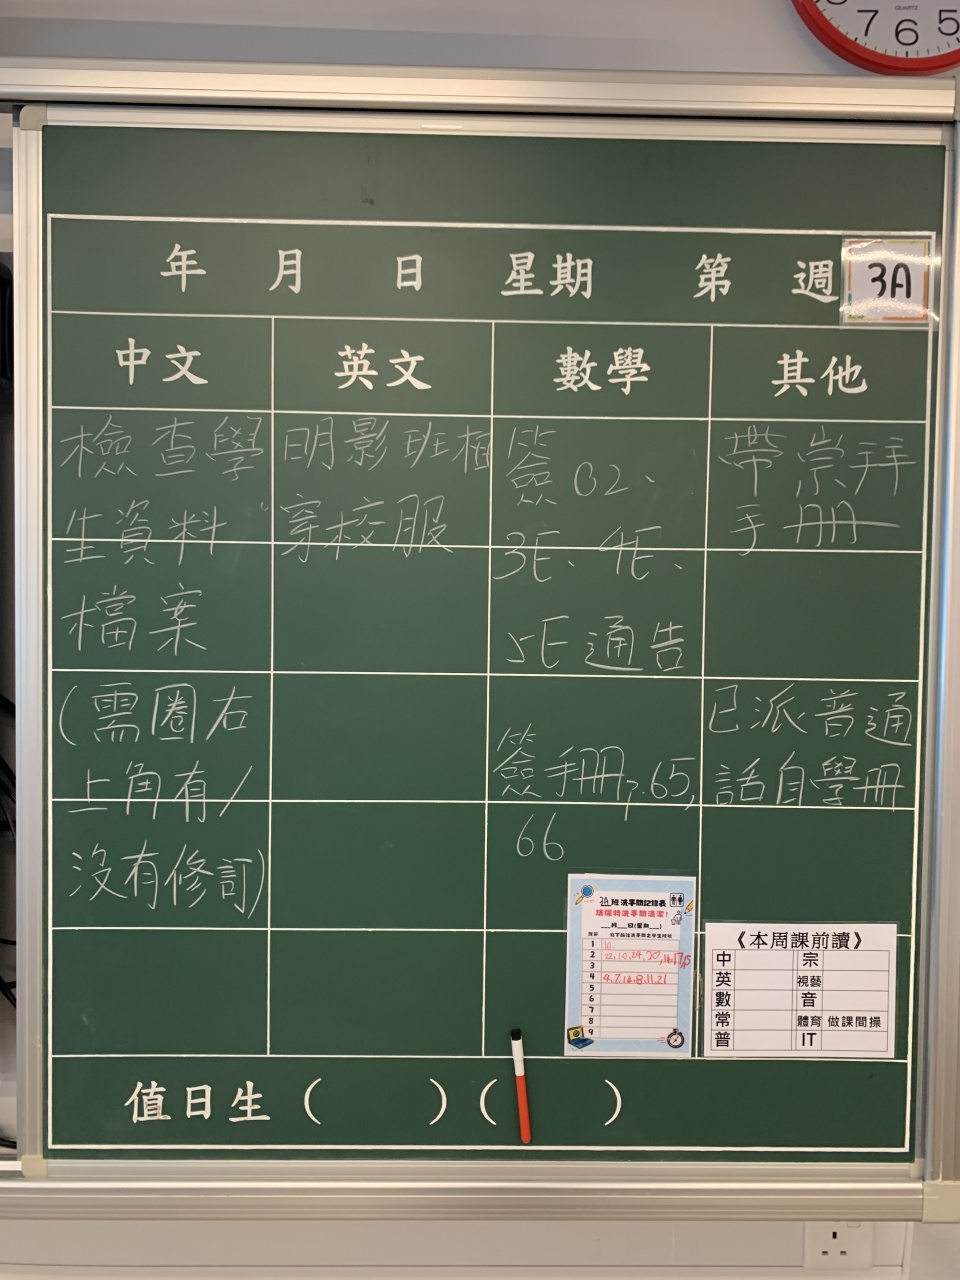 7 6 5
QUARTZ
年 月 日 星期 第 週
3A
中文
英文
數學
其他
檢查學
生資料
檔案
(需圈右
上角有/
沒有修訂)
明影班相
穿校服
簽02、
3E、4E、
5E通告
簽手冊p.65,
66
帶崇拜
手冊
已派普通
話自學冊
3A班洗手間記錄表
請保持洗手間清潔!
___月___日(星期___)
1 10.
2 22, 10, 24, 20, 16, 17, 15
3
4 4, 7, 14, 8, 11, 21
5
6
7
8
9
《本周課前讀》
中 宗
英 視藝
數 音
常 體育 做課間操
普 IT
值日生 ( ) ( )